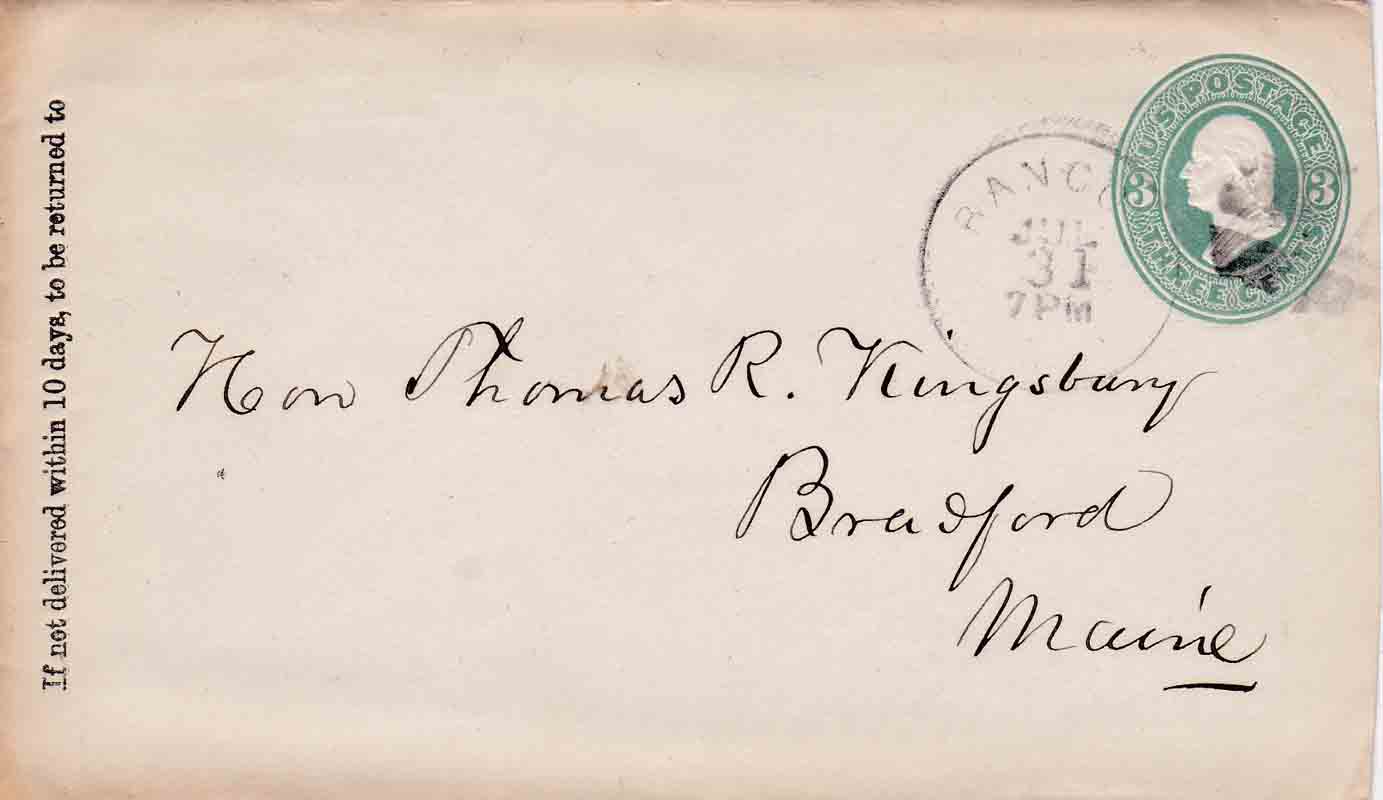 If not delivered within 10 days, to be returned to
U.S. POSTAGE
3 3
THREE CENTS
JUL
31
7 PM
Hon Thomas R. Kingsbury
Bradford
Maine